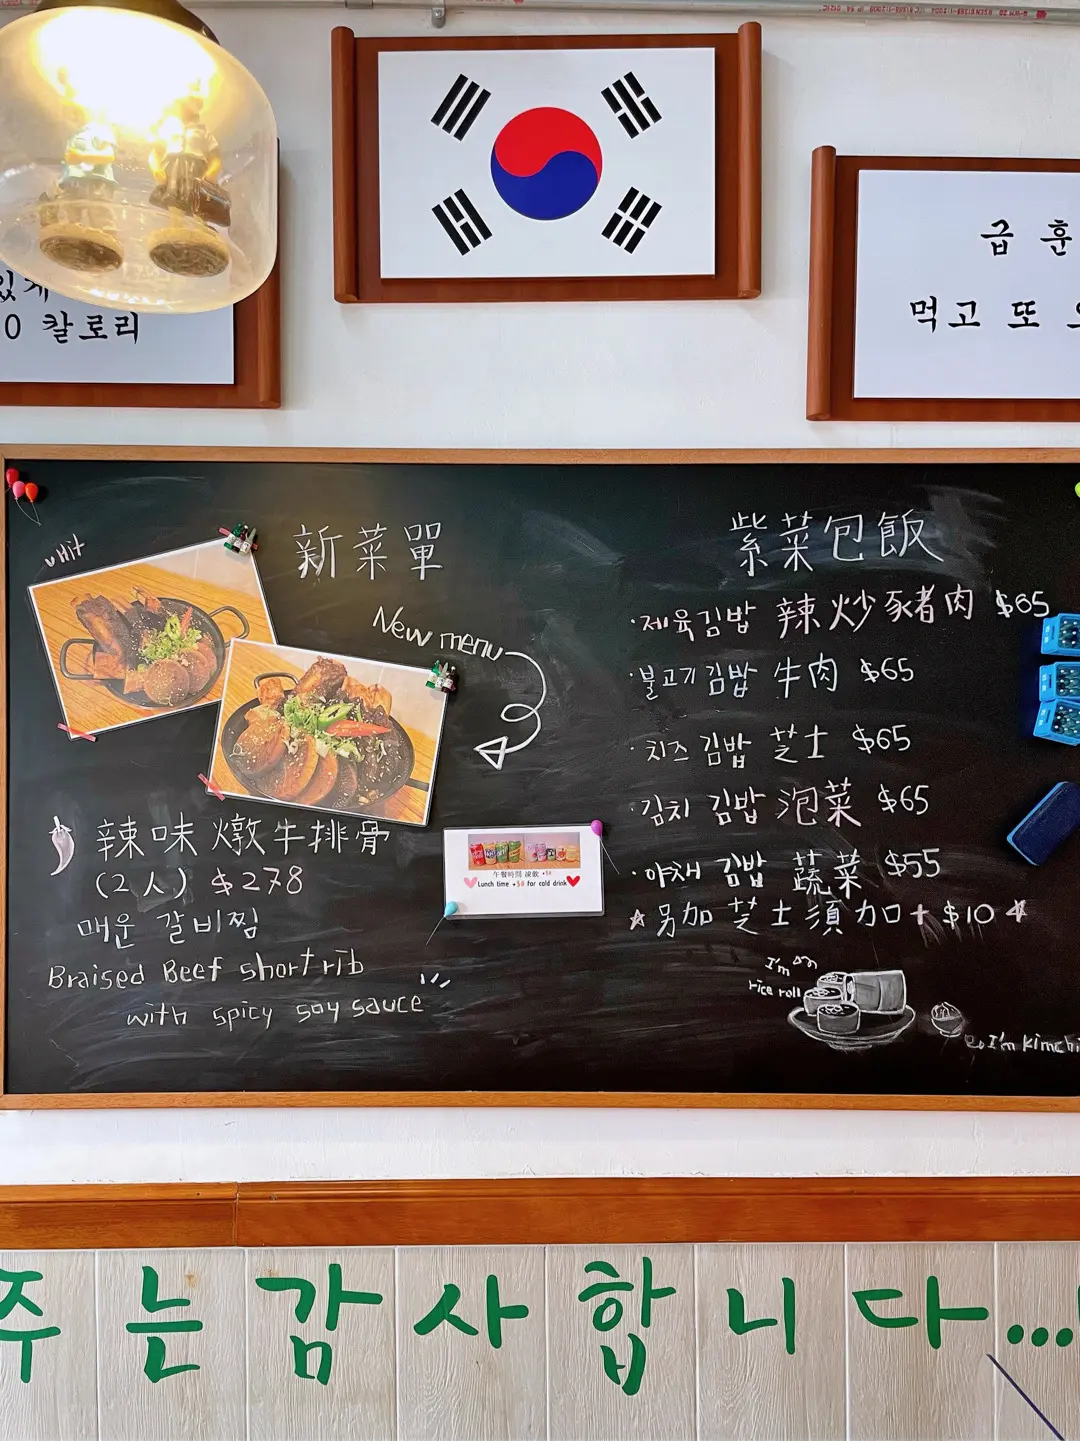 칼로리
급 훈
먹고 또
Hit
新菜單
New menu
辣味燉牛排骨
(2人) $278
매운 갈비찜
Braised Beef short rib
with spicy soy sauce
午餐時間 凍飲 +$8
Lunch time +$8 for cold drink
紫菜包飯
·제육김밥 辣炒豬肉 $65
·불고기김밥 牛肉 $65
·치즈 김밥 芝士 $65
·김치 김밥 泡菜 $65
·야채 김밥 蔬菜 $55
☆另加芝士須加+$10☆
I'm
rice roll
I'm kimchi
주는감사합니다...